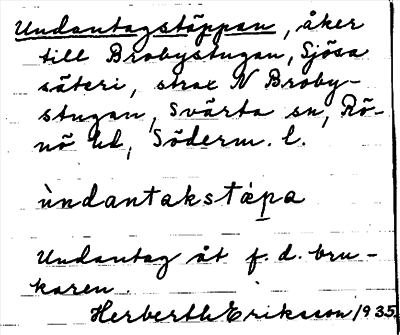 Undantagstäppan, åker
till Brobystugan, Sjösa
säteri, strax N Broby-
stugan, Svärta sn, Rö-
nö hd, Söderm. l.
ùndantakstɛ̀pa
Undantag åt f.d. bru-
karen.
Herberth Eriksson 1935